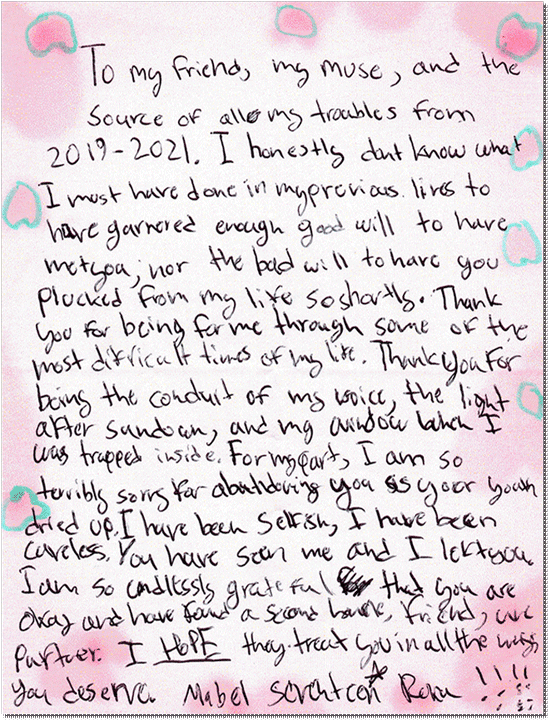 To my friend, my muse, and the
source of all my troubles from
2019-2021. I honestly dont know what
I must have done in my previous lives to
have garnered enough good will to have
met you, nor the bad will to have you
plucked from my life so shortly. Thank
you for being for me through some of the
most difficult times of my life. Thank you for
being the conduit of my voice, the light
after sundown, and my window when I
was trapped inside. For my part, I am so
terribly sorry for abandoning you as your youth
dried up. I have been selfish, I have been
careless. You have seen me and I left you.
I am so endlessly grateful that you are
okay and have found a second home, friend, and
partner. I HOPE they treat you in all the ways
you deserve. Mabel Seventeen